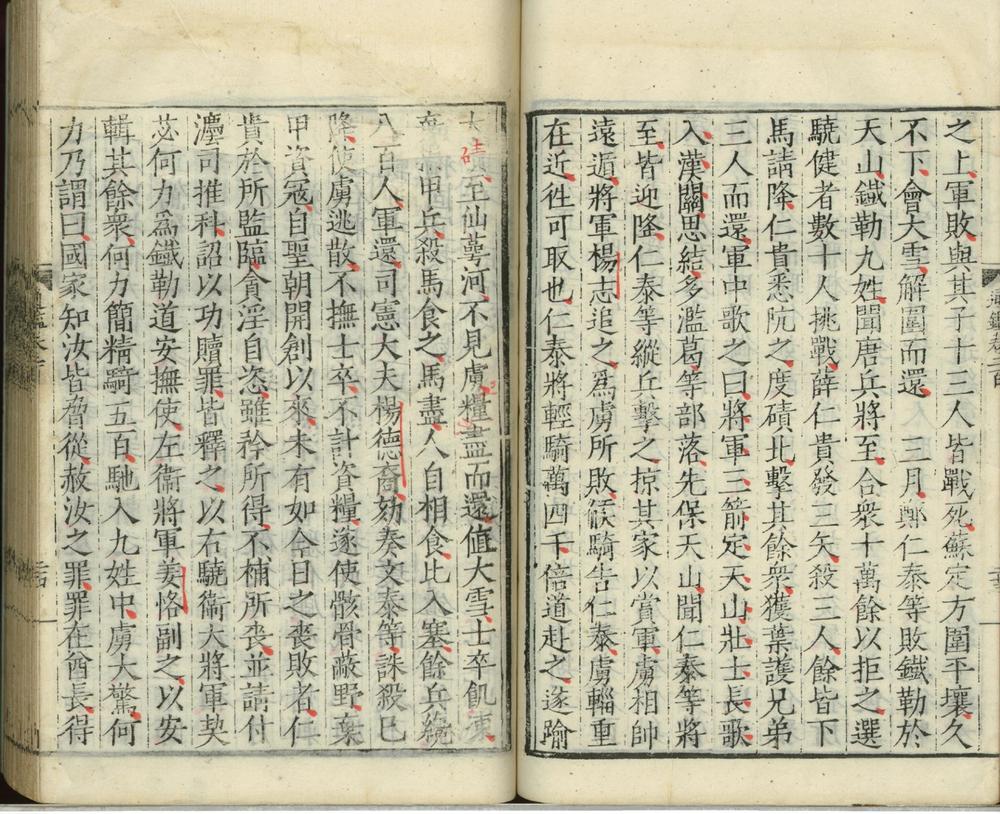 之上軍敗與其子十三人皆戰死蘇定方圍平壤久
不下會大雪解圍而還　三月鄭仁泰等敗鐵勒於
天山鐵勒九姓聞唐兵將至合衆十萬餘以拒之選
驍健者數十人挑戰薛仁貴發三矢殺三人餘皆下
馬請降仁貴悉阬之度磧北擊其餘衆獲葉護兄弟
三人而還軍中歌之曰將軍三箭定天山壯士長歌
入漢關思結多濫葛等部落先保天山聞仁泰等將
至皆迎降仁泰等縱兵擊之掠其家以賞軍虜相帥
遠遁將軍楊志追之爲虜所敗候騎告仁泰虜輜重
在近往可取也仁泰將輕騎萬四千倍道赴之遂踰
大磧至仙萼河不見虜糧盡而還値大雪士卒飢凍
棄甲兵殺馬食之馬盡人自相食比入塞餘兵纔
八百人軍還司憲大夫楊德裔劾奏文泰等誅殺已
降使虜逃散不撫士卒不計資糧遂使骸骨蔽野棄
甲資冦自聖朝開創以來未有如今日之喪敗者仁
貴於所監臨貪淫自恣雖矜所得不補所喪並請付
灋司推科詔以功贖罪皆釋之以右驍衞大將軍契
苾何力爲鐵勒道安撫使左衞將軍姜恪副之以安
輯其餘衆何力簡精騎五百馳入九姓中虜大驚何
力乃謂曰國家知汝皆脅從赦汝之罪罪在酋長得